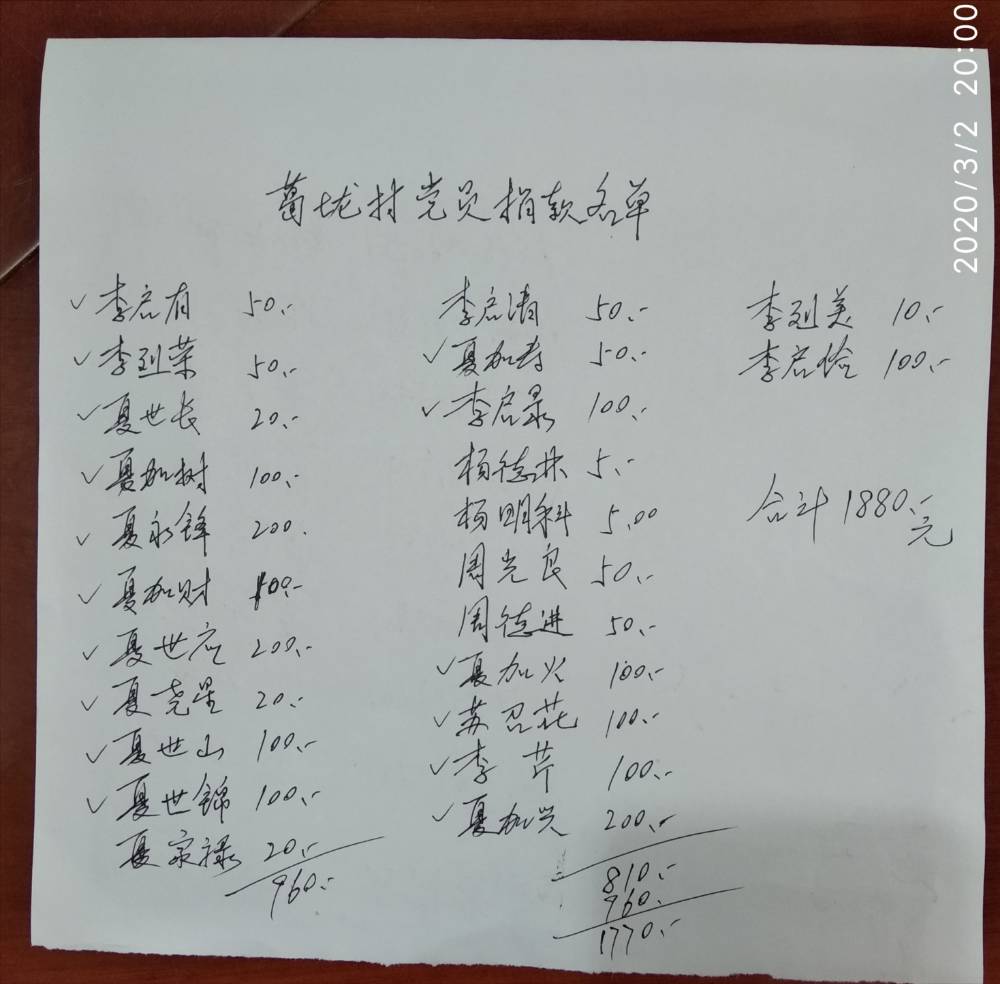 葛垅村党员捐款名单
✓李启有 50.-
✓李列荣 50.-
✓夏世长 20.-
✓夏加树 100.-
✓夏永锋 200.
✓夏加财 100.-
✓夏世应 200.-
✓夏尧星 20.-
✓夏世山 100.-
✓夏世锦 100.-
夏家禄 20.-
960.-
李启清 50.-
✓夏加寿 50.-
✓李启录 100.-
杨德林 5.-
杨明科 5.00
周光良 50.-
周德进 50.-
✓夏加火 100.-
✓苏召花 100.-
✓李芹 100.-
✓夏加兴 200.-
810.-
960.
1770.-
李列美 10.-
李启俭 100.-
合计1880.-元
2020/3/2 20:00